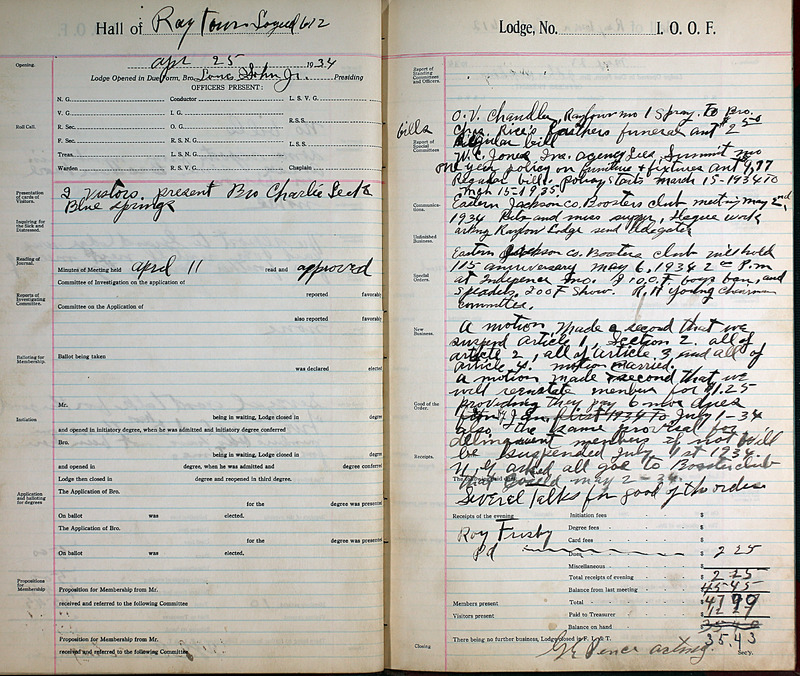 Hall of Raytown Lodge 612
Opening.
apr 25 1934
Lodge Opened in Due Form, Bro. Louis John Jr. Presiding
OFFICERS PRESENT:
Roll Call.
N. G. Conductor L. S. V. G.
V. G. I. G. R.S.S.
R. Sec. O. G. L. S.S.
F. Sec. R. S. N. G.
Treas. L. S. N. G.
Warden R. S. V. G. Chaplain
Presentation of cards of Visitors.
2 Visitors present Bro Charlie
Blue Springs
Inquiring for the Sick and Distressed.
Reading of Journal.
Minutes of Meeting held april 11 read and approved
Committee of Investigation on the application of
Reports of Investigating Committee.
reported favorabl
Committee on the Application of
also reported favorabl
Balloting for Membership.
Ballot being taken
was declared elected
Mr.
being in waiting, Lodge closed in degre
Initiation
and opened in initiatory degree, when he was admitted and initiatory degree conferred
Bro.
being in waiting, Lodge closed in degre
and opened in degree, when he was admitted and degree conferred
Lodge then closed in degree and reopened in third degree.
Application and balloting for degrees
The Application of Bro.
for the degree was presented
On ballot was elected.
The Application of Bro.
for the degree was presented
On ballot was elected.
Propositions for Membership
Proposition for Membership from Mr.
received and referred to the following Committee
Proposition for Membership from Mr.
received and referred to the following Committee
Lodge, No. I. O. O. F.
Report of Standing Committees and Officers.
O. V. Chandler, Raytown mo 1 Spray. to Bro.
bills
Chas. Rice's fathers funeral amt $2.50
Regular bill
Report of Special Committees
W. C. Jones Ins. agency Lees, Summit mo
one year policy on furniture & fixtures amt 9,77
Regular bill, policy starts march 15-1934 to
March 15-1935
Communications.
Eastern Jackson co. Boosters club meeting may 2nd,
1934
asking Raytown Lodge send delegates
Unfinished Business.
Eastern Jackson co. Booster club will hold
115 anniversary may 6, 1934 2 P.m
Special Orders.
at Indepence mo. I O.O.F. boys
I O O F Show. R. H Young Chairman
Committee.
New Business.
A motion made & second that we
suspend article 1, Section 2. all of
article 2, all of article 3, and all of
article 4. motion carried.
a motion made & second that we
will reinstate members for $1.25
Good of the Order.
providing they pay 6 mos dues
from Jan first 1934 to July 1-34
also the same provised for
delinquent members if not will
be suspended July 1st 1934.
Receipts.
N. G. asked all goe to Booster club
may 2-34.
Several talks for good of the order
Receipts of the evening Initiation fees $
Roy Frisby Degree fees $
Card fees $
pd Dues $ 2 25
Miscellaneous
Total receipts of evening $ 2 25
Balance from last meeting 45 45
Members present Total $
Visitors present Paid to Treasurer $
Balance on hand
There being no further business, Lodge closed in F. L. & T. 35.43
Closing
Pence acting. Sec'y.